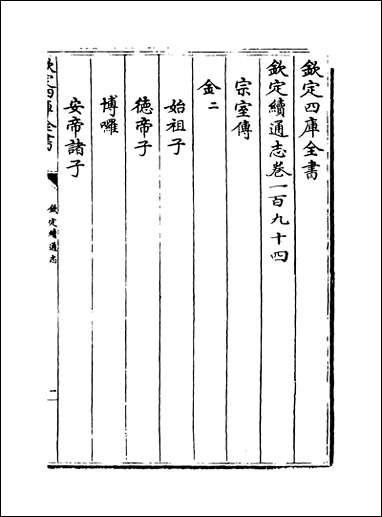 欽定四庫全書
欽定續通志卷一百九十四
宗室傳
金二
始祖子
德帝子
博囉
安帝諸子
欽定四庫全書
欽定續通志